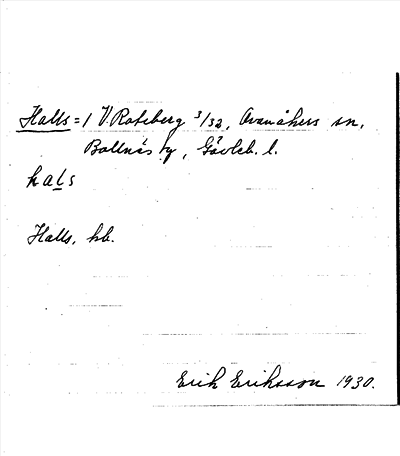 Halls = 1 V. Roteberg 3/32, Ovanåkers sn,
Bollnäs tg, Gävleb. l.
hals
Halls, hb.
Erik Eriksson 1930.